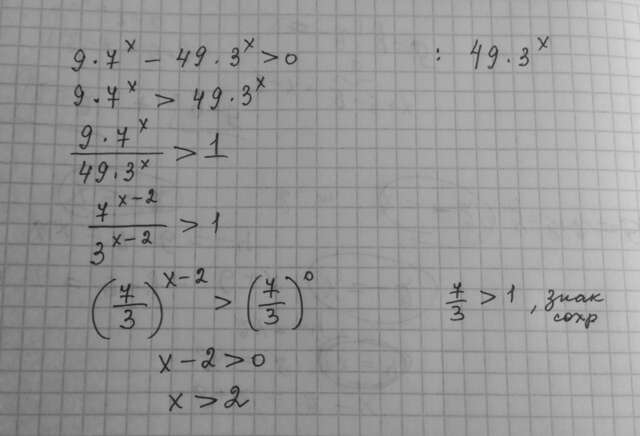 9·7^x − 49·3^x > 0 : 49·3^x
9·7^x > 49·3^x
9·7^x / 49·3^x > 1
7^(x−2) / 3^(x−2) > 1
(7/3)^(x−2) > (7/3)^0 7/3 > 1, знак сохр
x − 2 > 0
x > 2